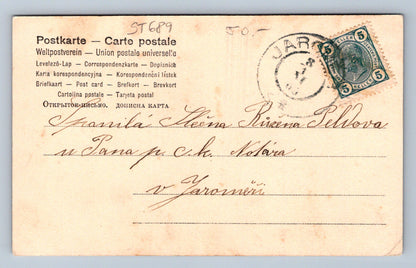 ST689
50,-
Postkarte – Carte postale
Weltpostverein – Union postale universelle
Levelező-Lap – Correspondenzkarte – Dopisnice
Karta korespondencyjna – Korespondenční lístek
Briefkaart – Post card – Brefkort – Brevkort
Cartolina postale – Tarjeta postal
Открытое письмо. Дописна карта
JARO
5 5
5 5
Spanilá Slečna Růžena Peldova
u Pana p. c. k. Notára
v Jaroměři